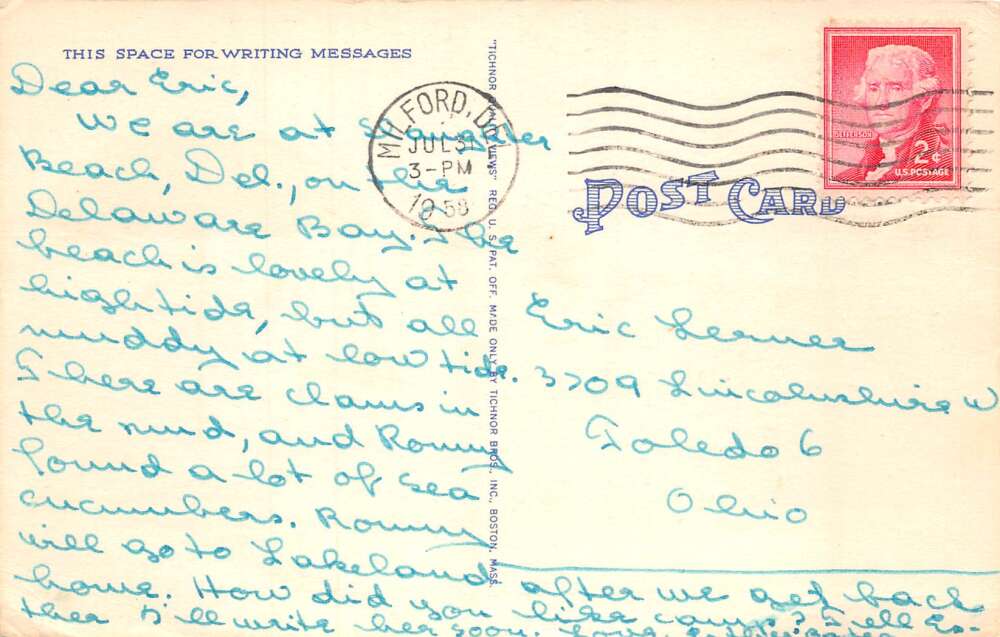 THIS SPACE FOR WRITING MESSAGES
Dear Eric,
We are at Slaughter
Beach, Del., on the
Delaware Bay. The
beach is lovely at
high tide, but all
muddy at low tide.
There are clams in
the mud, and Ronny
found a lot of sea
cucumbers. Ronny
will go to Lakeland after we get back
home. How did you like camp? Tell Es-
ther I'll write her soon. Love,
"TICHNOR VIEWS" REG. U. S. PAT. OFF. MADE ONLY BY TICHNOR BROS., INC., BOSTON, MASS.
MILFORD, DEL.
JUL 31
3-PM
1958
JEFFERSON
2¢
U.S. POSTAGE
POST CARD
Eric Lerner
3709 Lincolnshire W
Toledo 6
Ohio